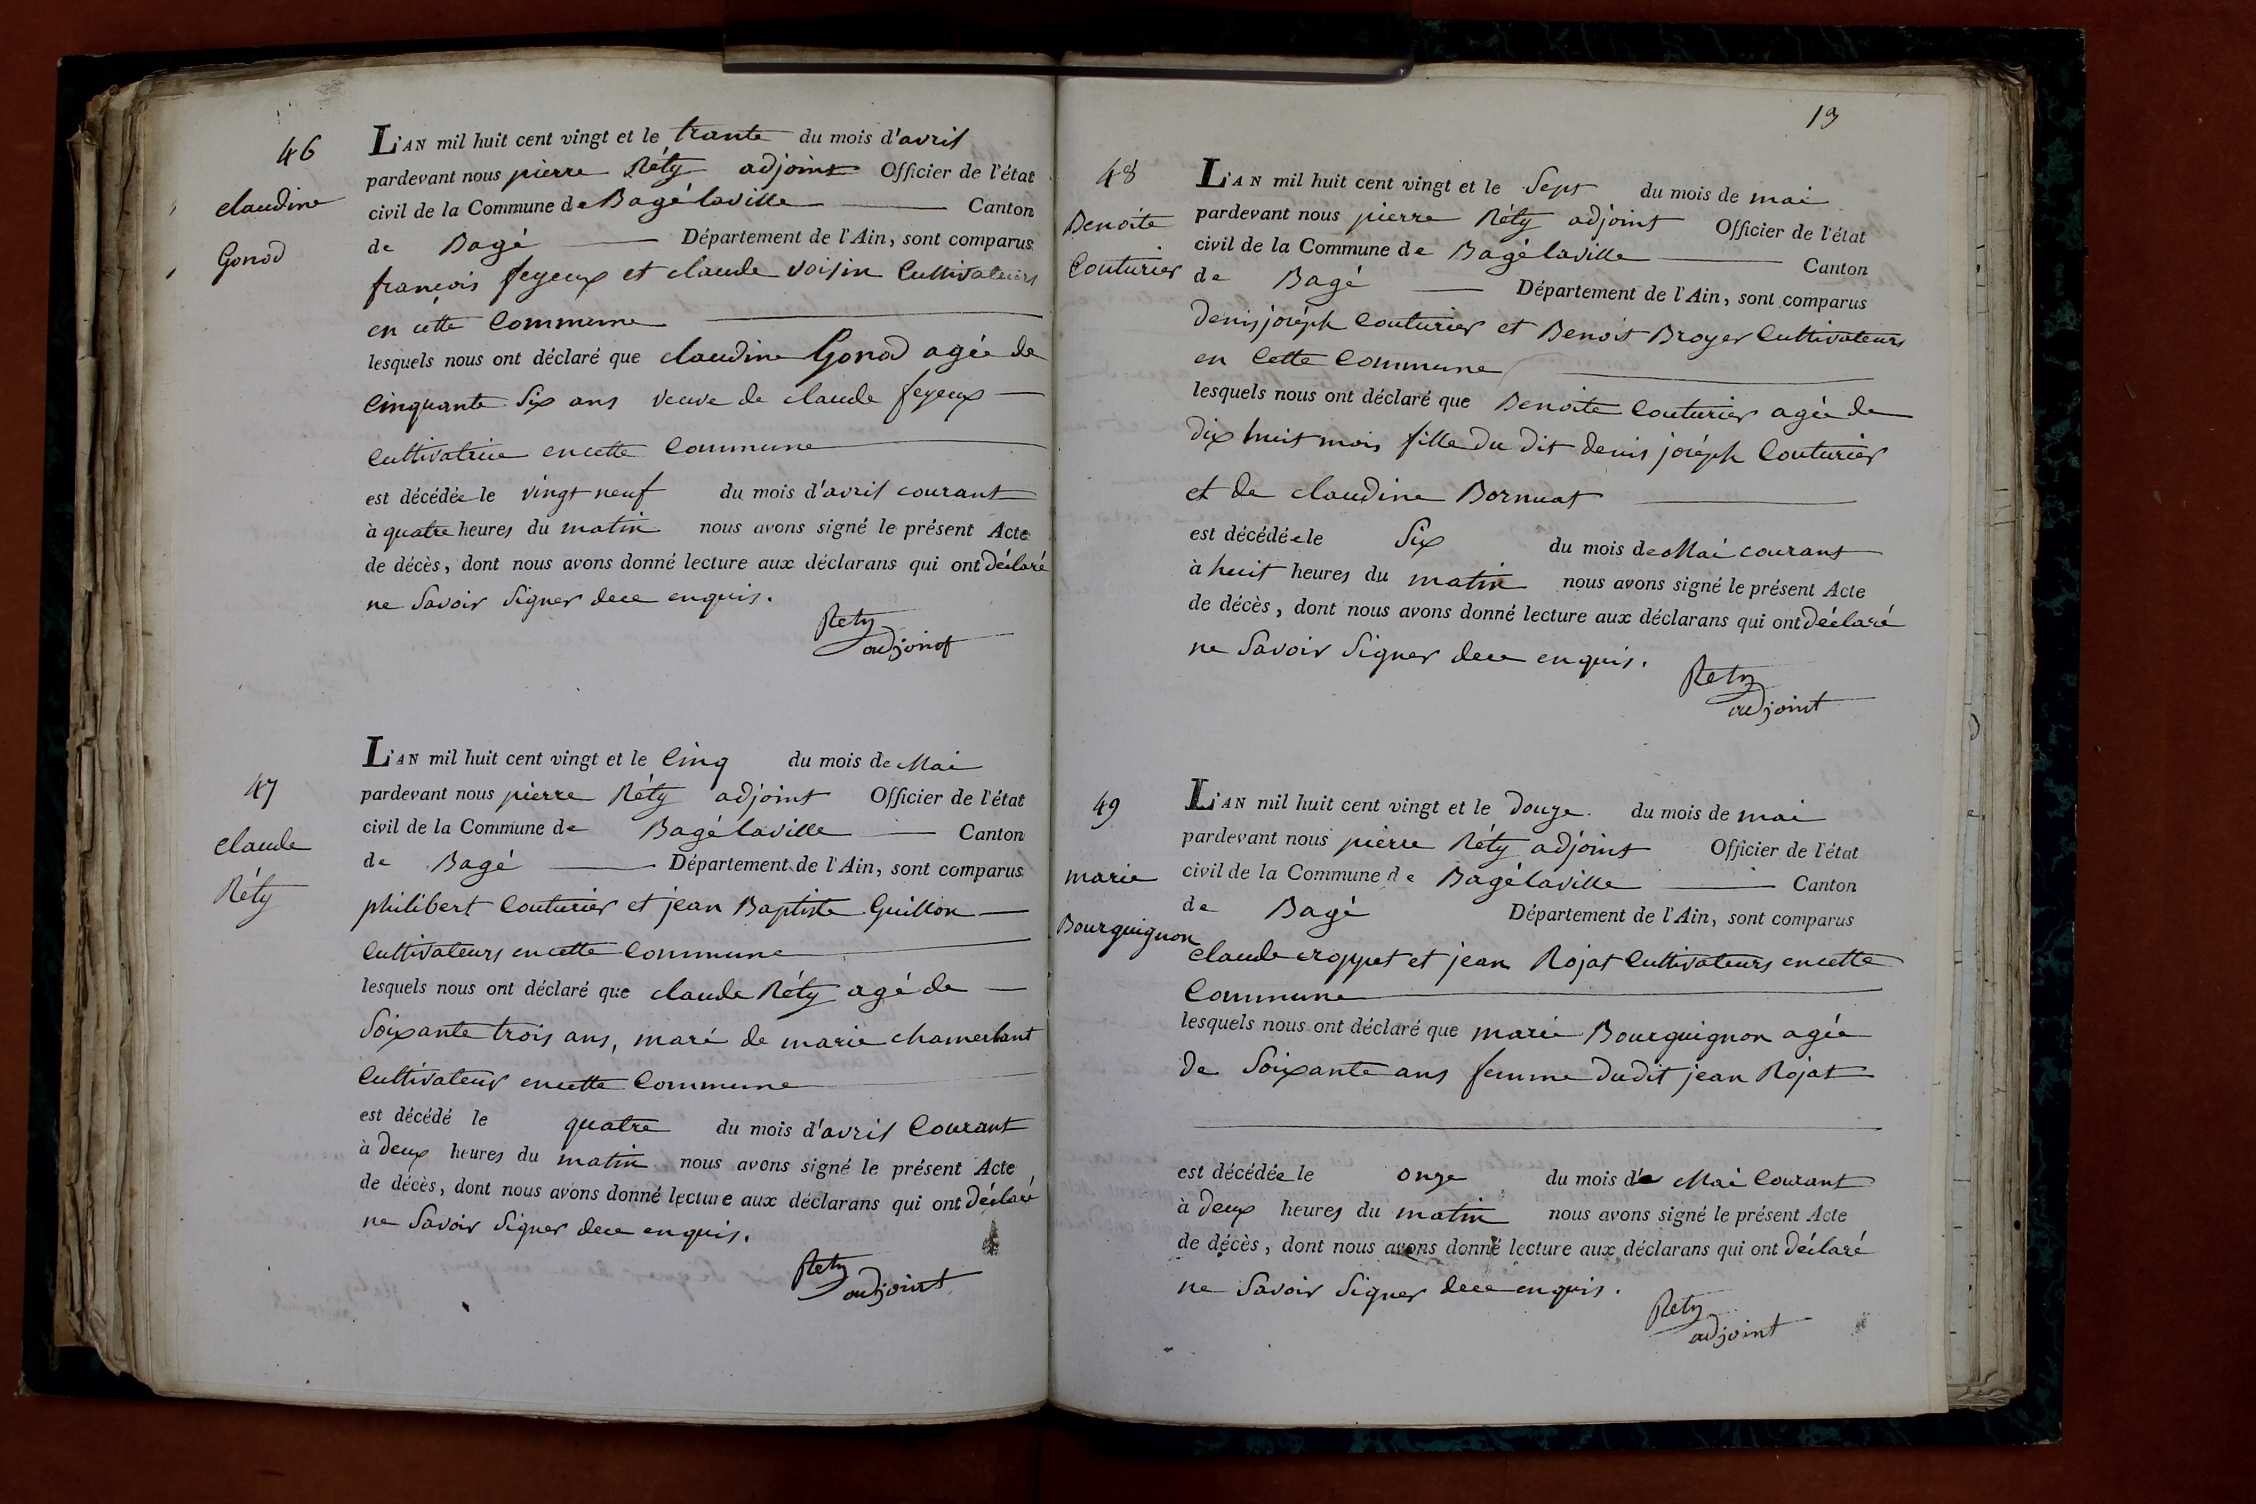 46
claudine
Gonod
L'AN mil huit cent vingt et le trante du mois d'avril
pardevant nous pierre Réty adjoint Officier de l'état
civil de la Commune de Bagé laville Canton
de Bagé Département de l'Ain, sont comparus
françois feyeux et claude voisin Cultivateurs
en cette Commune
lesquels nous ont déclaré que claudine Gonod agée de
Cinquante Six ans veuve de claude feyeux
Cultivatrice en cette Commune
est décédée le vingt neuf du mois d'avril courant
à quatre heures du matin nous avons signé le présent Acte
de décès, dont nous avons donné lecture aux déclarans qui ont déclaré
ne Savoir Signer de ce enquis.
Rety
adjoint
47
claude
Réty
L'AN mil huit cent vingt et le Cinq du mois de Mai
pardevant nous pierre Réty adjoint Officier de l'état
civil de la Commune de Bagé laville Canton
de Bagé Département de l'Ain, sont comparus
philibert Couturier et jean Baptiste Guillon
Cultivateurs en cette Commune
lesquels nous ont déclaré que claude Réty agé de
Soixante trois ans, maré de marie chamerlant
Cultivateur en cette Commune
est décédé le quatre du mois d'avril Courant
à deux heures du matin nous avons signé le présent Acte
de décès, dont nous avons donné lecture aux déclarans qui ont déclaré
ne Savoir Signer de ce enquis.
Rety
adjoint
13
48
Benoite
Couturier
L'AN mil huit cent vingt et le Sept du mois de mai
pardevant nous pierre Réty adjoint Officier de l'état
civil de la Commune de Bagé laville Canton
de Bagé Département de l'Ain, sont comparus
denis joséph Couturier et Benoit Broyer Cultivateurs
en Cette Commune
lesquels nous ont déclaré que Benoite Couturier agée de
dix huit mois fille du dit denis joséph Couturier
et de claudine Bornuat
est décédée le Six du mois de Mai courant
à huit heures du matin nous avons signé le présent Acte
de décès, dont nous avons donné lecture aux déclarans qui ont déclaré
ne Savoir Signer de ce enquis.
Rety
adjoint
49
marie
Bourguignon
L'AN mil huit cent vingt et le douze du mois de mai
pardevant nous pierre Réty adjoint Officier de l'état
civil de la Commune de Bagé laville Canton
de Bagé Département de l'Ain, sont comparus
claude croppet et jean Rojat Cultivateurs en cette
Commune
lesquels nous ont déclaré que marie Bourguignon agée
de Soixante ans femme dudit jean Rojat
est décédée le onze du mois de Mai Courant
à deux heures du matin nous avons signé le présent Acte
de décès, dont nous avons donné lecture aux déclarans qui ont déclaré
ne Savoir Signer de ce enquis.
Rety
adjoint